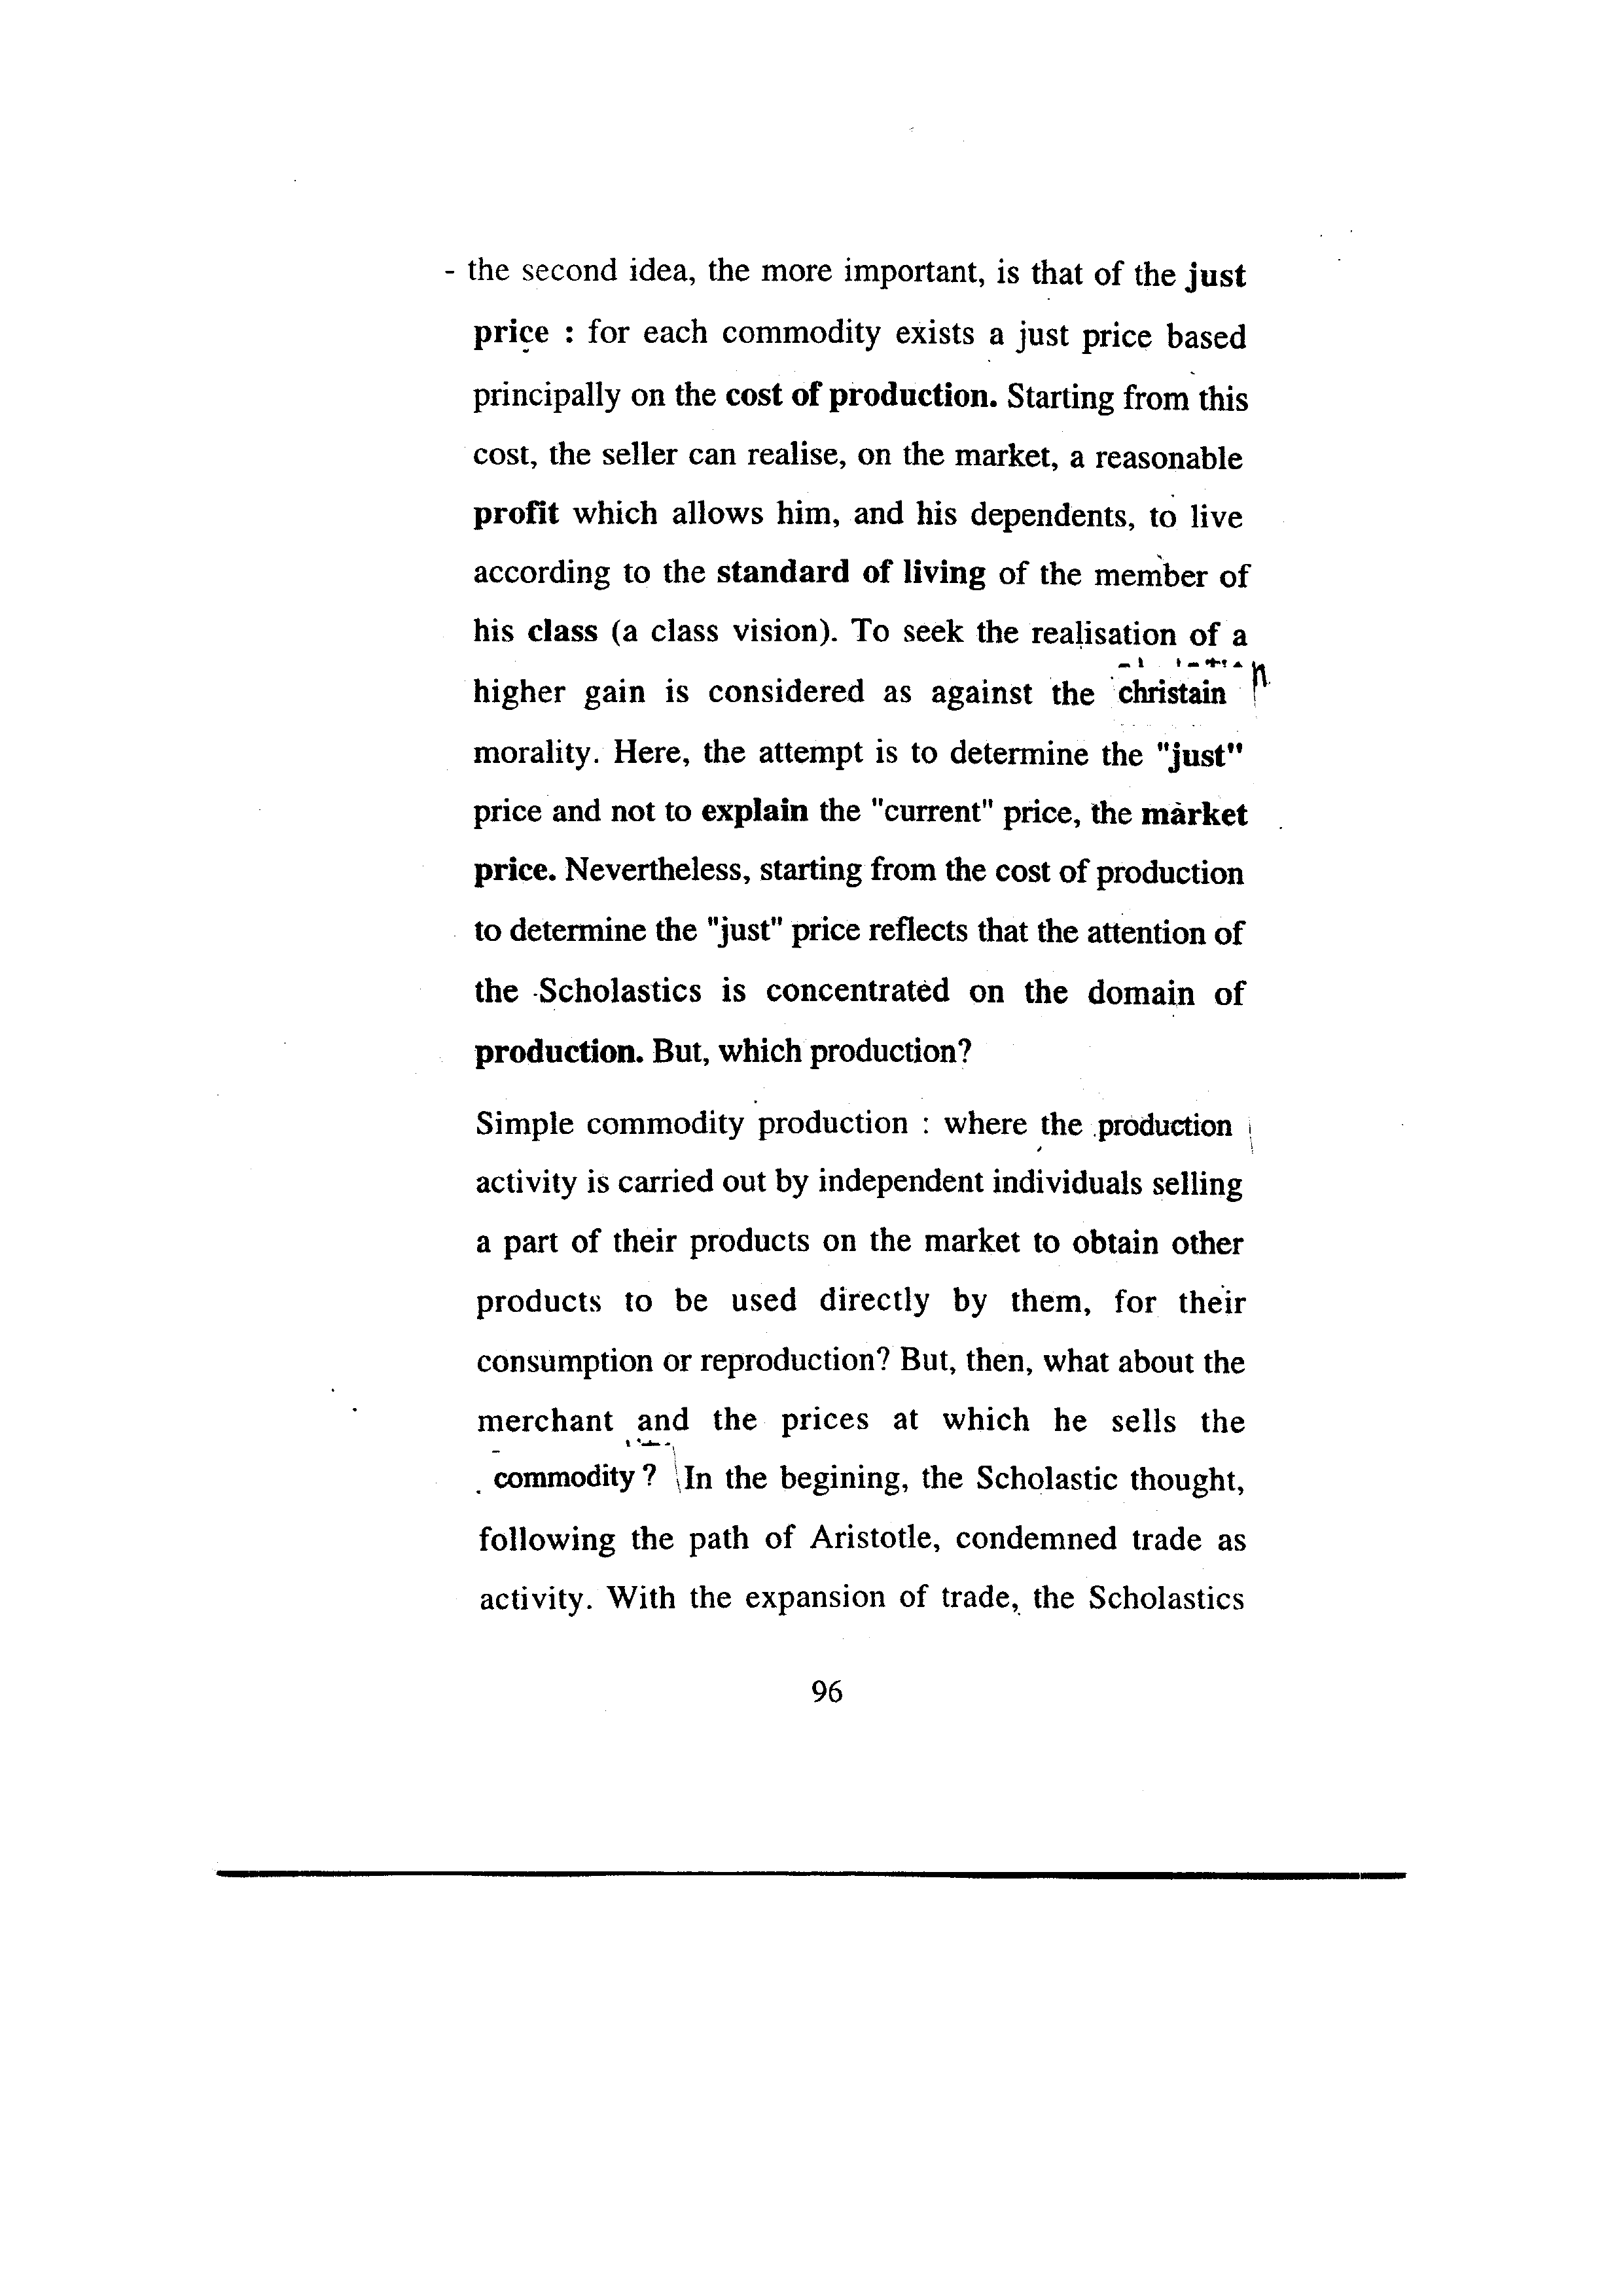 - the second idea, the more important, is that of the just
price : for each commodity exists a just price based
principally on the cost of production. Starting from this
cost, the seller can realise, on the market, a reasonable
profit which allows him, and his dependents, to live
according to the standard of living of the member of
his class (a class vision). To seek the realisation of a
higher gain is considered as against the christain
morality. Here, the attempt is to determine the "just"
price and not to explain the "current" price, the market
price. Nevertheless, starting from the cost of production
to determine the "just" price reflects that the attention of
the Scholastics is concentrated on the domain of
production. But, which production?
Simple commodity production : where the production
activity is carried out by independent individuals selling
a part of their products on the market to obtain other
products to be used directly by them, for their
consumption or reproduction? But, then, what about the
merchant and the prices at which he sells the
commodity ? In the begining, the Scholastic thought,
following the path of Aristotle, condemned trade as
activity. With the expansion of trade, the Scholastics
96